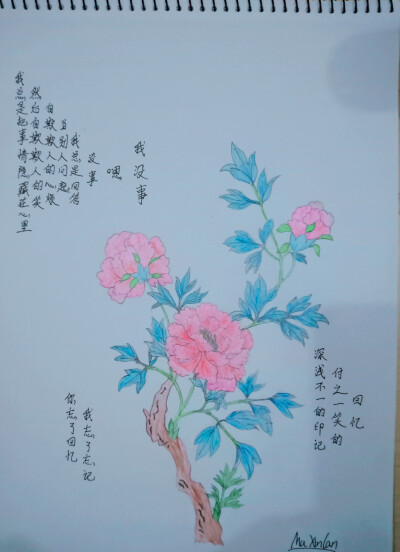 我总是把事情隐藏在心里
然后自欺欺人的笑
自欺欺人的心
当别人问起
我总是回答
没事
嗯
我没事
深浅不一的印记
付之一笑的
回忆
你忘了回忆
我忘了忘记